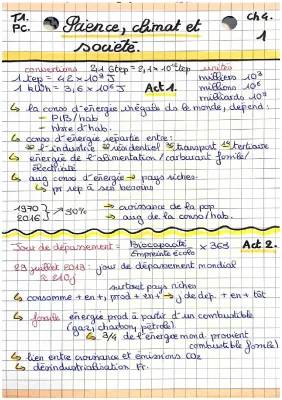 T1.
PC.
Science, climat et
société.
Ch4.
1
conversions 2,1 Gtep = 2,1 × 10⁹ tep
unités
1 tep = 42 × 10⁹ J
milliers 10³
1 kWh = 3,6 × 10⁶ J
Act 1.
millions 10⁶
milliards 10⁹
↳ la conso d'énergie inégale ds le monde, dépend :
– PIB/hab
– Nbre d'hab.
↳ conso d'énergie répartie entre :
* l'industrie * résidentiel * transport * tertiaire
↳ énergie de l'alimentation / carburant fossile/
électricité
↳ aug conso d'énergie → pays riches.
↳ pr rep à ses besoins
1970
2016
→ 50%
→ croissance de la pop
→ aug de la conso/hab.
Jour de dépassement = Biocapacité / Empreinte écolo × 365
Act 2.
29 juillet 2019 : jour de dépassement mondial
≈ 210j
surtout pays riches
↳ consomme + en +, prod + en + → j de dep. + en + tôt
↳ fossile énergie prod à partir d'un combustible
(gaz, charbon, pétrole).
↳ 3/4 de l'énergie mond. provient
combustible fossile)
↳ lien entre croissance et émissions CO2
↳ désindustrialisation Fr.